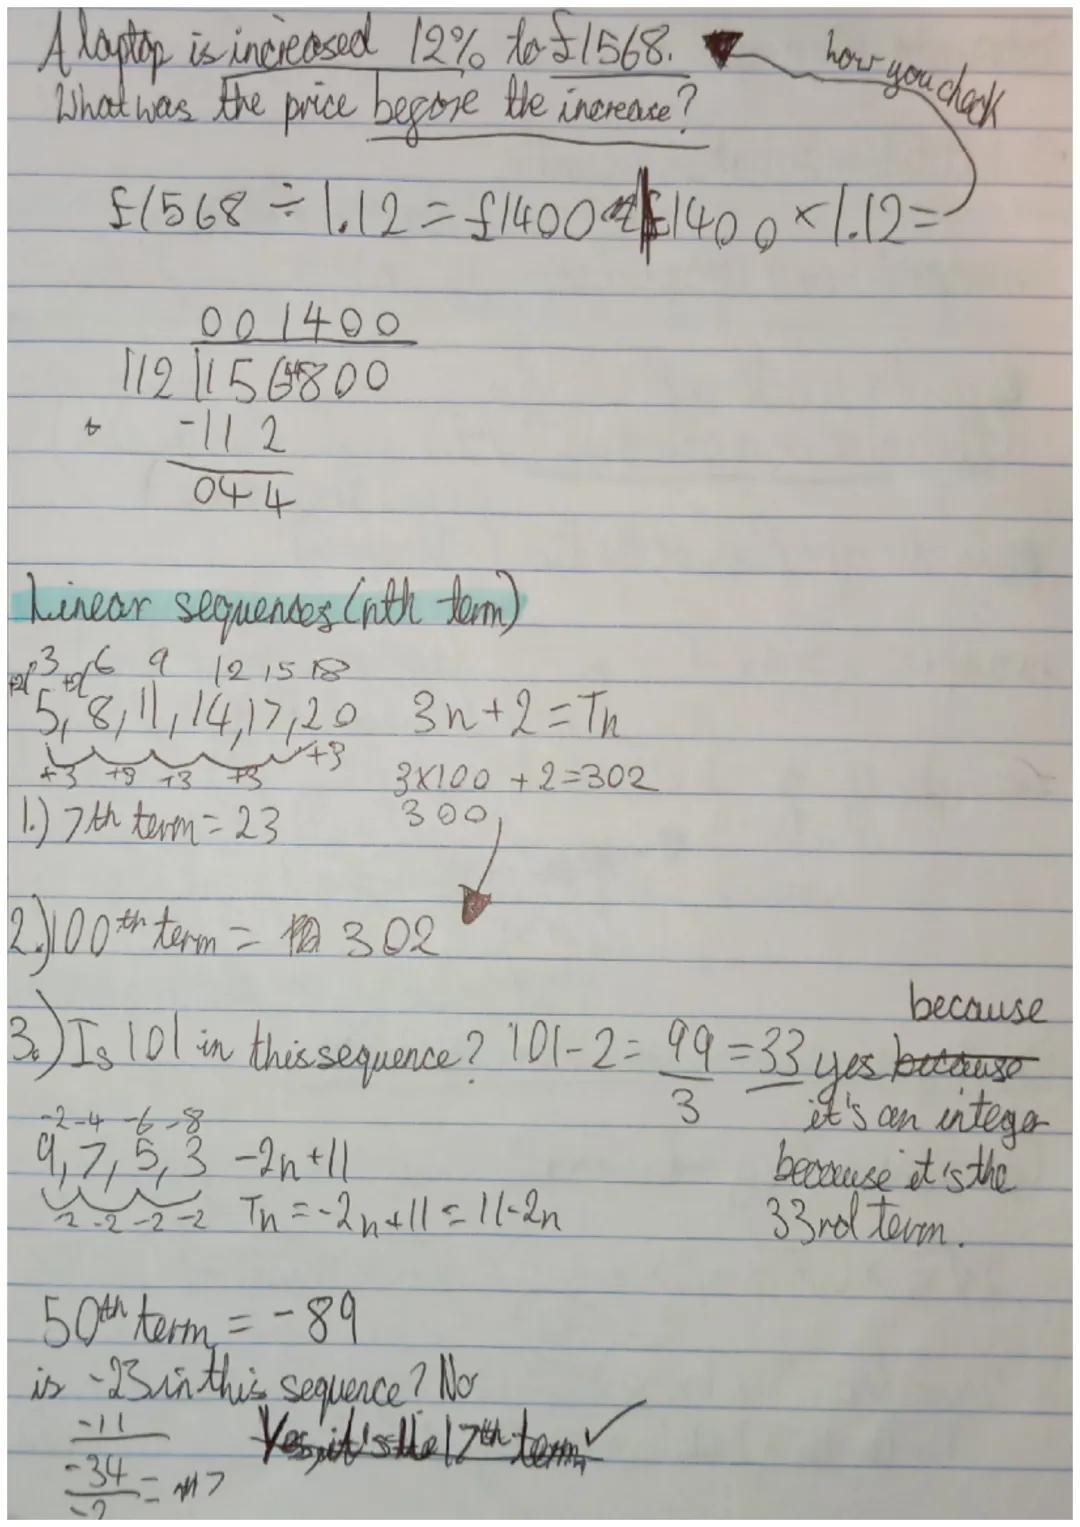 A laptop is increased 12% to £1568.
how you check
What was the price before the increase?
£1568 ÷ 1.12 = £1400 £1400 × 1.12 =
001400
112 156800
-112
044
Linear sequences (nth term)
+2 3 +2 6 9 12 15 18
5, 8, 11, 14, 17, 20 3n + 2 = Tn
+3 +3 +3 +3 +3
3×100 + 2 = 302
300
1.) 7th term = 23
2.) 100th term = 302
3.) Is 101 in this sequence? 101 - 2 = 99 = 33 yes because
3
because
it's an integer
because it's the
33rd term.
-2 -4 -6 -8
9, 7, 5, 3 -2n + 11
-2 -2 -2 -2 Tn = -2n + 11 = 11 - 2n
50th term = -89
is -23 in this sequence? No
-11
Yes, it's the 17th term ✓
-34 = 17
-2